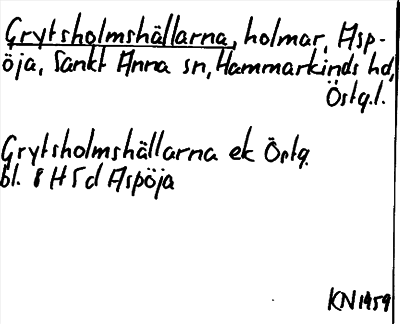 Grytsholmshällarna, holmar, Asp-
öja, Sankt Anna sn, Hammarkinds hd,
Östg.l.
Grytsholmshällarna ek Östg.
bl. 8 H 5 d Aspöja
KN 1959